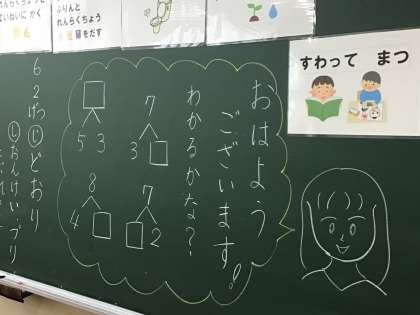 れんらくちょう
ていねいに かく
ぷりんと
れんらくちょう
をだす
すわって まつ
おはよう
ございます!!
わかるかな?
5 3
7
3
8
4
7
2
6 2 げつ
じ どおり